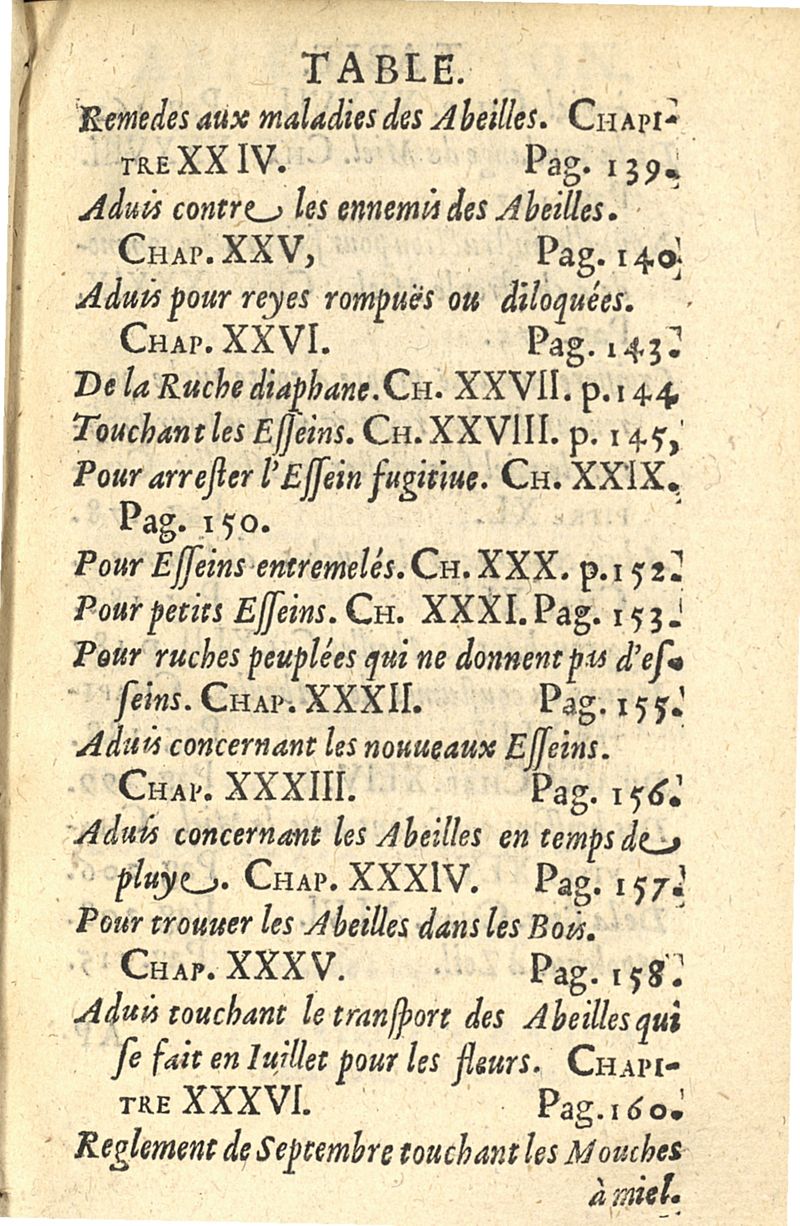 TABLE.
Remedes aux maladies des Abeilles. CHAPI-
TRE XXIV. Pag. 139.
Aduis contre les ennemis des Abeilles.
CHAP. XXV, Pag. 140
Aduis pour reyes rompuës ou diloquées.
CHAP. XXVI. Pag. 143.
De la Ruche diaphane. CH. XXVII. p. 144
Touchant les Eſſeins. CH. XXVIII. p. 145,
Pour arreſter l'Eſſein fugitiue. CH. XXIX.
Pag. 150.
Pour Eſſeins entremelés. CH. XXX. p. 152.
Pour petits Eſſeins. CH. XXXI. Pag. 153.
Pour ruches peuplées qui ne donnent pas d'eſ-
ſeins. CHAP. XXXII. Pag. 155.
Aduis concernant les nouueaux Eſſeins.
CHAP. XXXIII. Pag. 156.
Aduis concernant les Abeilles en temps de
pluye. CHAP. XXXIV. Pag. 157.
Pour trouuer les Abeilles dans les Bois.
CHAP. XXXV. Pag. 158.
Aduis touchant le tranſport des Abeilles qui
ſe fait en Iuillet pour les fleurs. CHAPI-
TRE XXXVI. Pag. 160.
Reglement de Septembre touchant les Mouches
à miel.